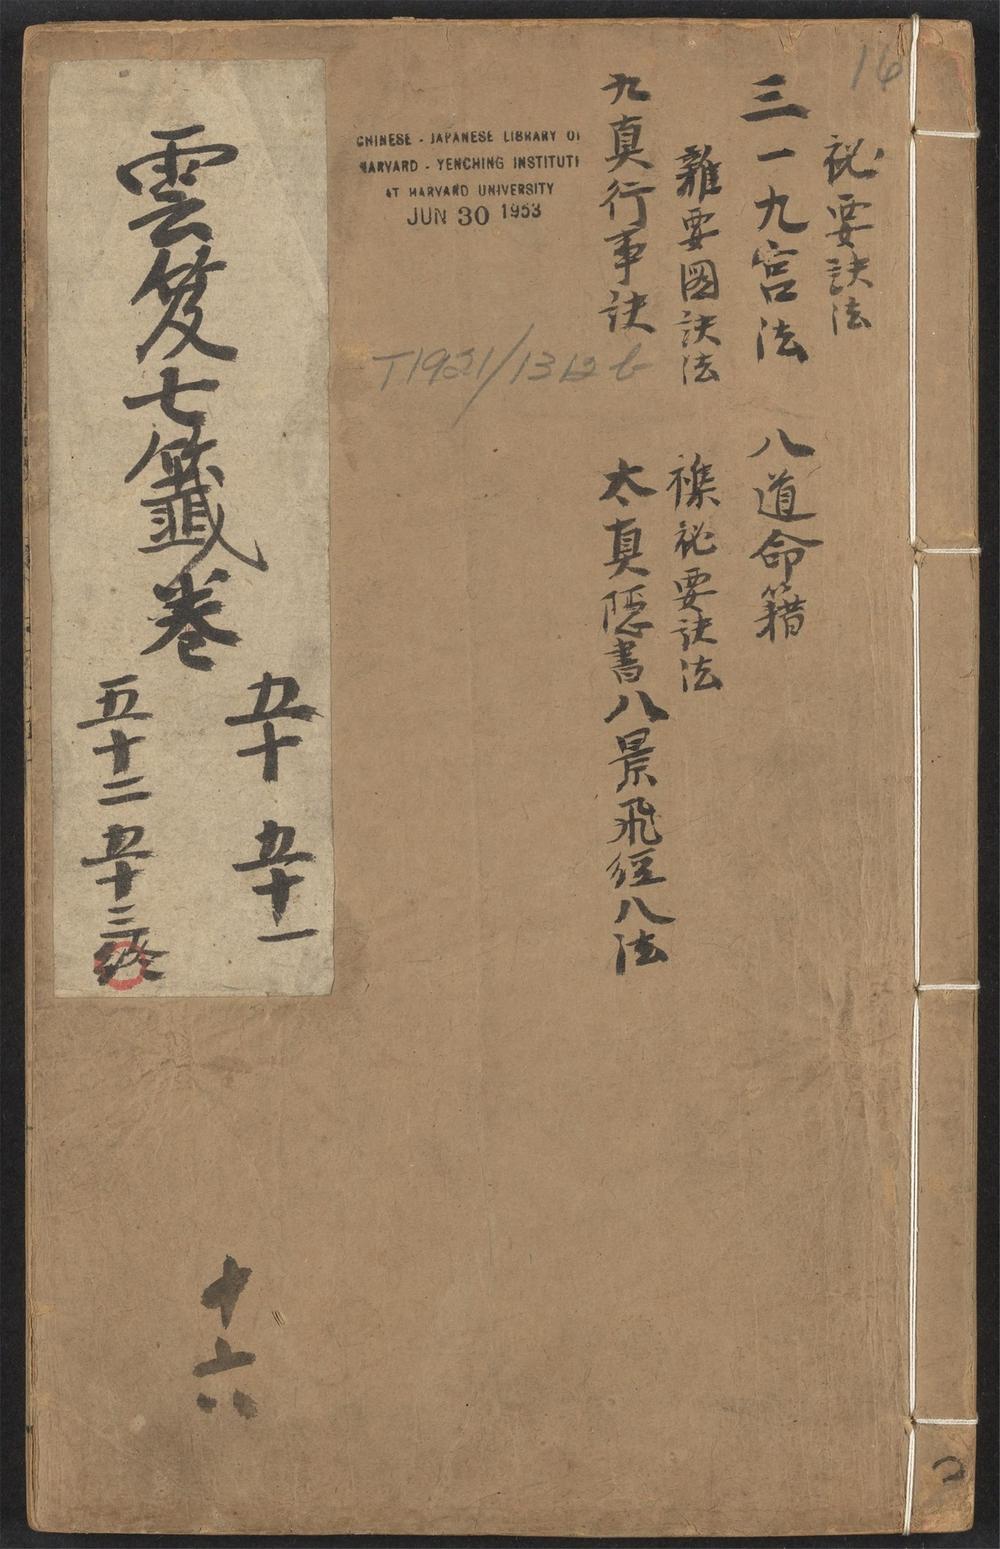 16
祕要訣法
三一九宫法 八道命籍
雜要圖訣法 襍祕要訣法
九真行事訣 太真隱書八景飛經八法
CHINESE - JAPANESE LIBRARY OF
HARVARD - YENCHING INSTITUTE
AT HARVARD UNIVERSITY
JUN 30 1953
T1921/1312 b
雲笈七籤卷
五十 五十一
五十二 五十三
十六